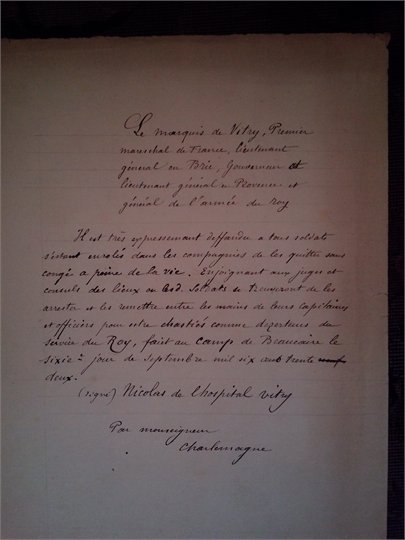 Le marquis de Vitry, Premier
mareschal de France, lieutenant
général en Brie, Gouverneur et
lieutenant général en Provence et
général de l'armée du roy
Il est très expressement deffandeu a tous soldats
s'estant enrolés dans les compagnies de les quitter sans
congé a peine de la vie. Enjoignant aux juges et
consuls des lieux ou lesd. Soldats se trouveront de les
arrester et les remettre entre les mains de leurs capitaines
et officiers pour estre chastiés comme dezerteurs du
service du Roy, fait au camp de Beaucaire le
sixie? jour de Septembre mil six cent trente
deux.
(signé) Nicolas de l'hospital vitry
Par monseigneur
Charlemagne